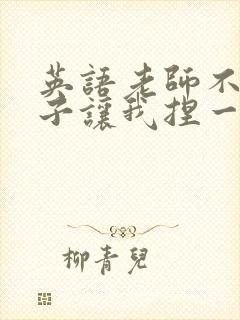 英語老師不
子讓我捏一
柳青兒